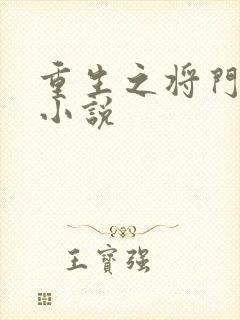 重生之将门
小说
王寶强